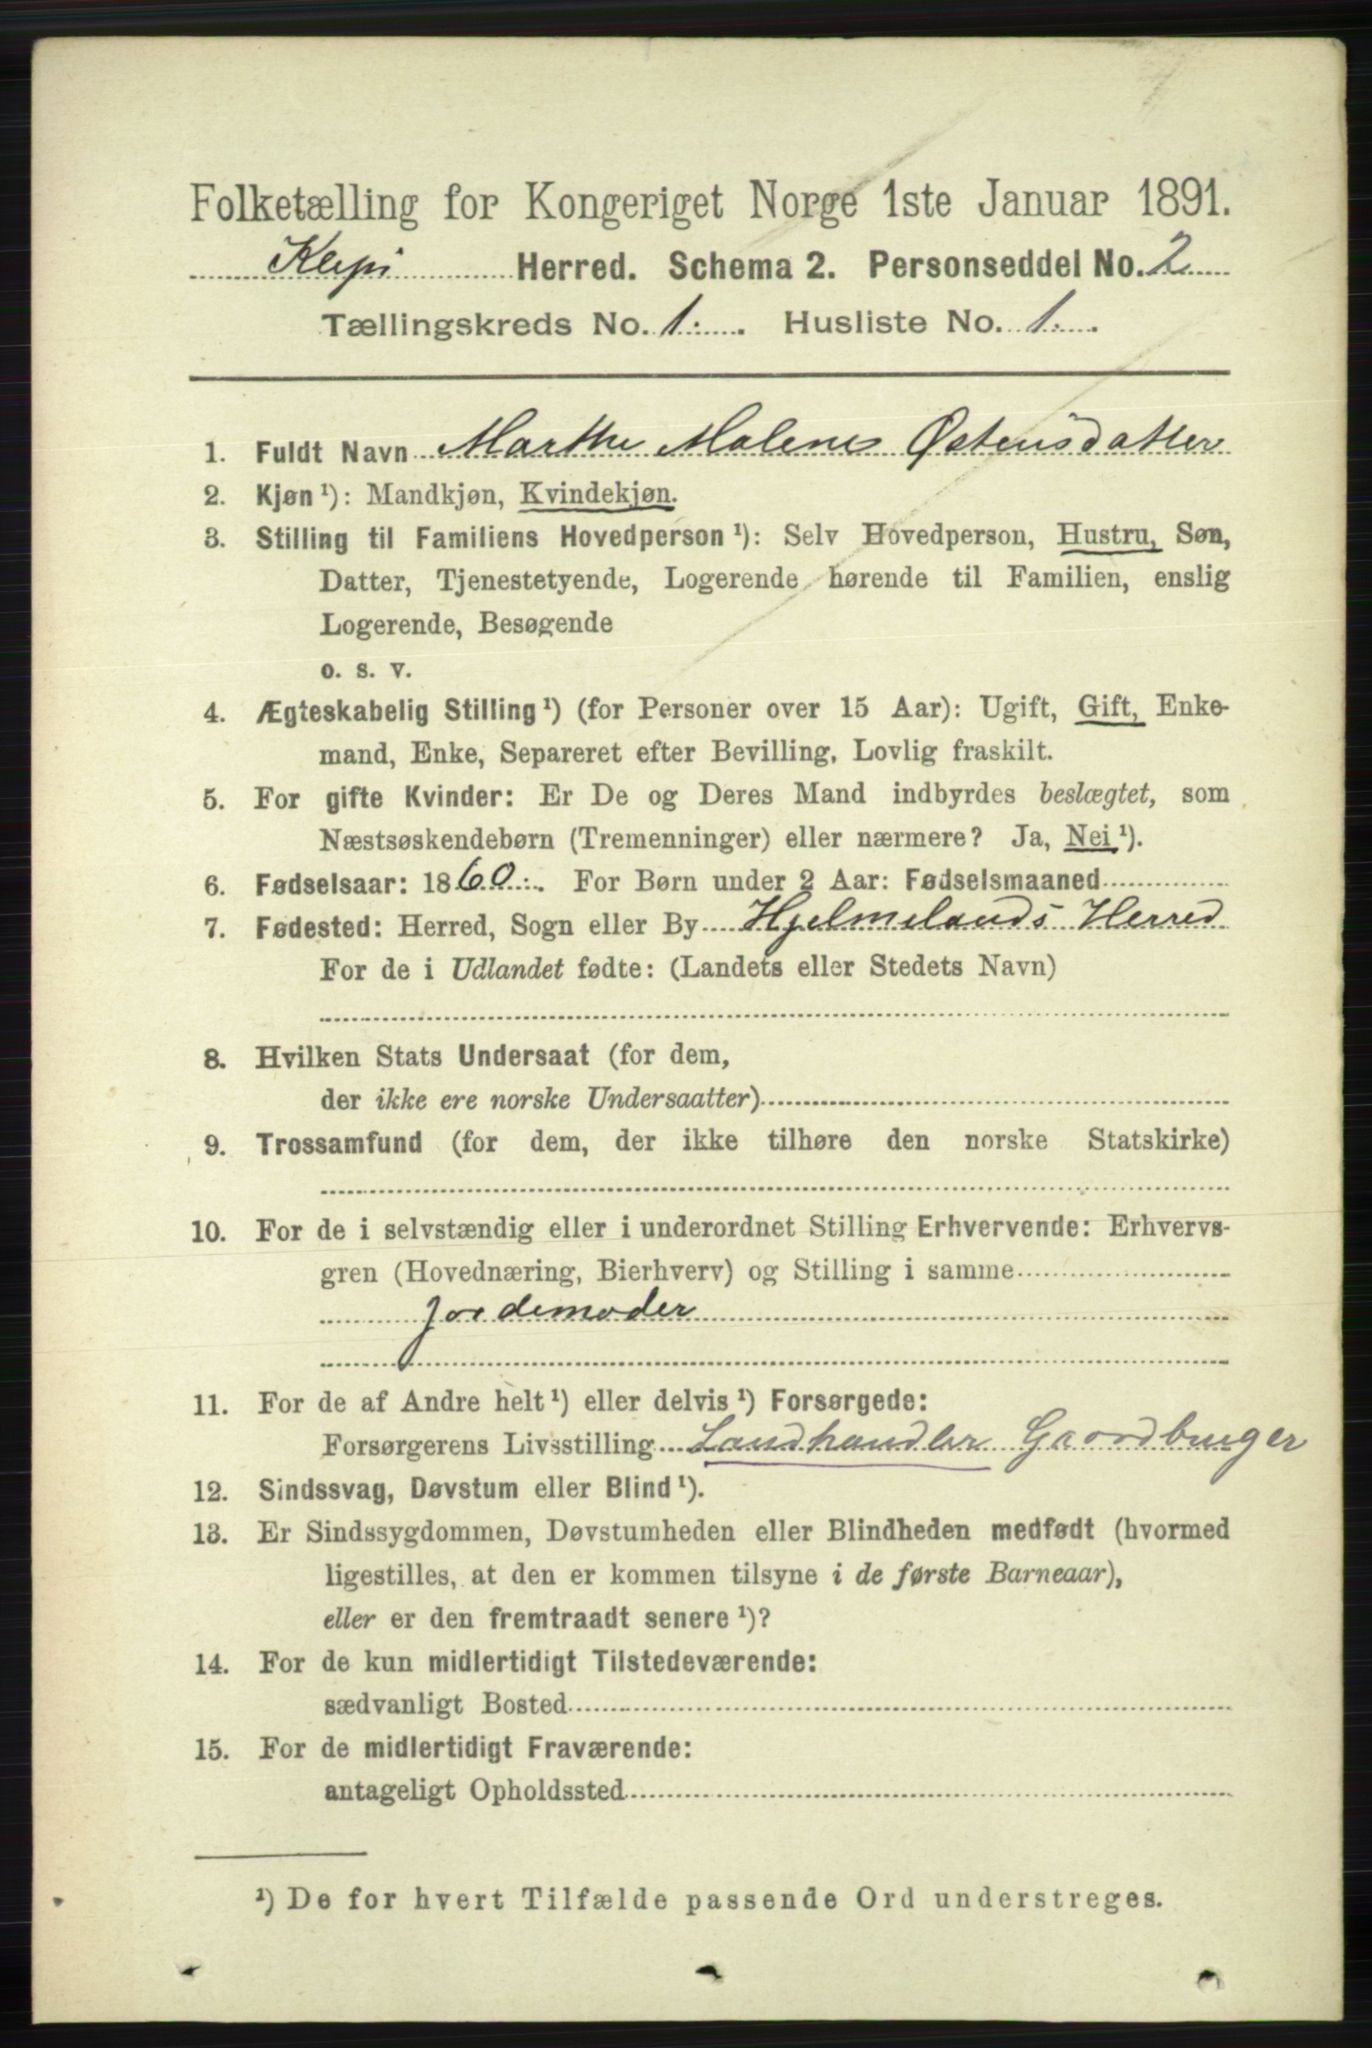 Folketælling for Kongeriget Norge 1ste Januar 1891.
Klepp Herred. Schema 2. Personseddel No. 2
Tællingskreds No. 1. Husliste No. 1.
1. Fuldt Navn Marthe Malene Østensdatter
2. Kjøn ¹): Mandkjøn, Kvindekjøn.
3. Stilling til Familiens Hovedperson ¹): Selv Hovedperson, Hustru, Søn,
Datter, Tjenestetyende, Logerende hørende til Familien, enslig
Logerende, Besøgende
o. s. v.
4. Ægteskabelig Stilling ¹) (for Personer over 15 Aar): Ugift, Gift, Enke-
mand, Enke, Separeret efter Bevilling, Lovlig fraskilt.
5. For gifte Kvinder: Er De og Deres Mand indbyrdes beslægtet, som
Næstsøskendebørn (Tremenninger) eller nærmere? Ja, Nei ¹).
6. Fødselsaar: 1860. For Børn under 2 Aar: Fødselsmaaned
7. Fødested: Herred, Sogn eller By Hjelmelands Herred
For de i Udlandet fødte: (Landets eller Stedets Navn)
8. Hvilken Stats Undersaat (for dem,
der ikke ere norske Undersaatter)
9. Trossamfund (for dem, der ikke tilhøre den norske Statskirke)
10. For de i selvstændig eller i underordnet Stilling Erhvervende: Erhvervs-
gren (Hovednæring, Bierhverv) og Stilling i samme
Jordemoder
11. For de af Andre helt ¹) eller delvis ¹) Forsørgede:
Forsørgerens Livsstilling Landhandler Gaardbruger
12. Sindssvag, Døvstum eller Blind ¹).
13. Er Sindssygdommen, Døvstumheden eller Blindheden medfødt (hvormed
ligestilles, at den er kommen tilsyne i de første Barneaar),
eller er den fremtraadt senere ¹)?
14. For de kun midlertidigt Tilstedeværende:
sædvanligt Bosted
15. For de midlertidigt Fraværende:
antageligt Opholdssted
¹) De for hvert Tilfælde passende Ord understreges.